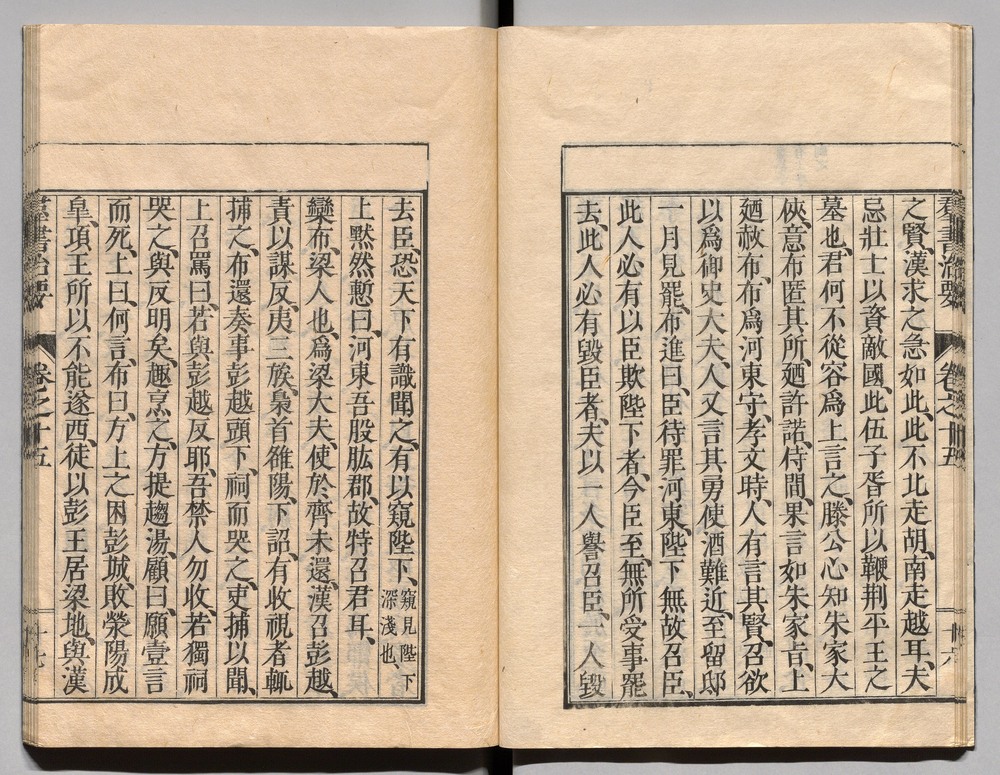 羣書治要 卷之十五 十六
之賢、漢求之急如此、此不北走胡、南走越耳、夫
忌壯士以資敵國、此伍子胥所以鞭荆平王之
墓也、君何不從容爲上言之、滕公心知朱家大
俠、意布匿其所、廼許諾、侍間、果言如朱家旨、上
廼赦布、布爲河東守、孝文時、人有言其賢、召欲
以爲御史大夫、人又言其勇使酒難近、至留邸
一月見罷、布進曰、臣待罪河東、陛下無故召臣、
此人必有以臣欺陛下者、今臣至、無所受事罷
去、此人必有毀臣者、夫以一人譽召臣、一人毀
去臣、恐天下有識聞之、有以窺陛下、窺見陛下深淺也、
上默然慙曰、河東吾股肱郡、故特召君耳、
欒布、梁人也、爲梁大夫、使於齊未還、漢召彭越、
責以謀反、夷三族、梟首雒陽、下詔、有收視者輒
捕之、布還奏事彭越頭下、祠而哭之、吏捕以聞、
上召罵曰、若與彭越反耶、吾禁人勿收、若獨祠
哭之、與反明矣、趣烹之、方提趨湯、顧曰、願壹言
而死、上曰、何言、布曰、方上之困彭城、敗滎陽成
皐、項王所以不能遂西、徒以彭王居梁地、與漢
羣書治要 卷之十五 十七